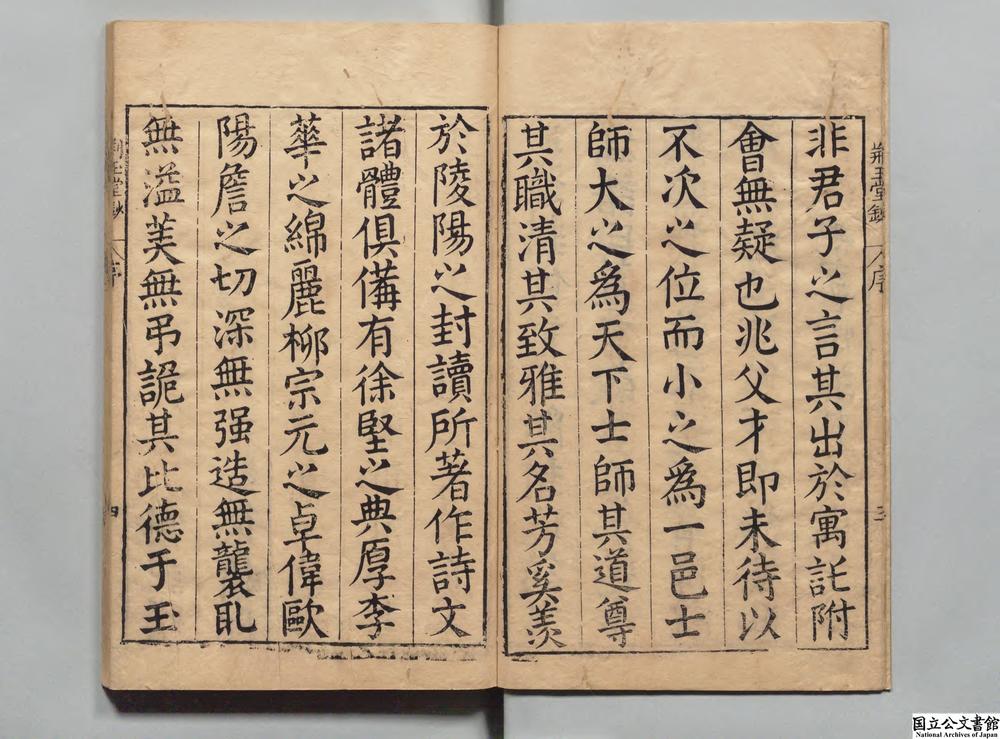 荊玉堂鈔 序 三
非君子之言其出於寓託附
會無疑也兆父才即未待以
不次之位而小之為一邑士
師大之為天下士師其道尊
其職清其致雅其名芳奚羨
於陵陽之封讀所著作詩文
諸體俱備有徐堅之典厚李
華之綿麗柳宗元之卓偉歐
陽詹之切深無强造無襲乿
無溢美無弔詭其比德于玉
序 四
国立公文書館
National Archives of Japan